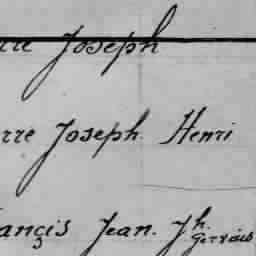 rre Joseph
rre Joseph Henri
ançis Jean. Jh. Gervais